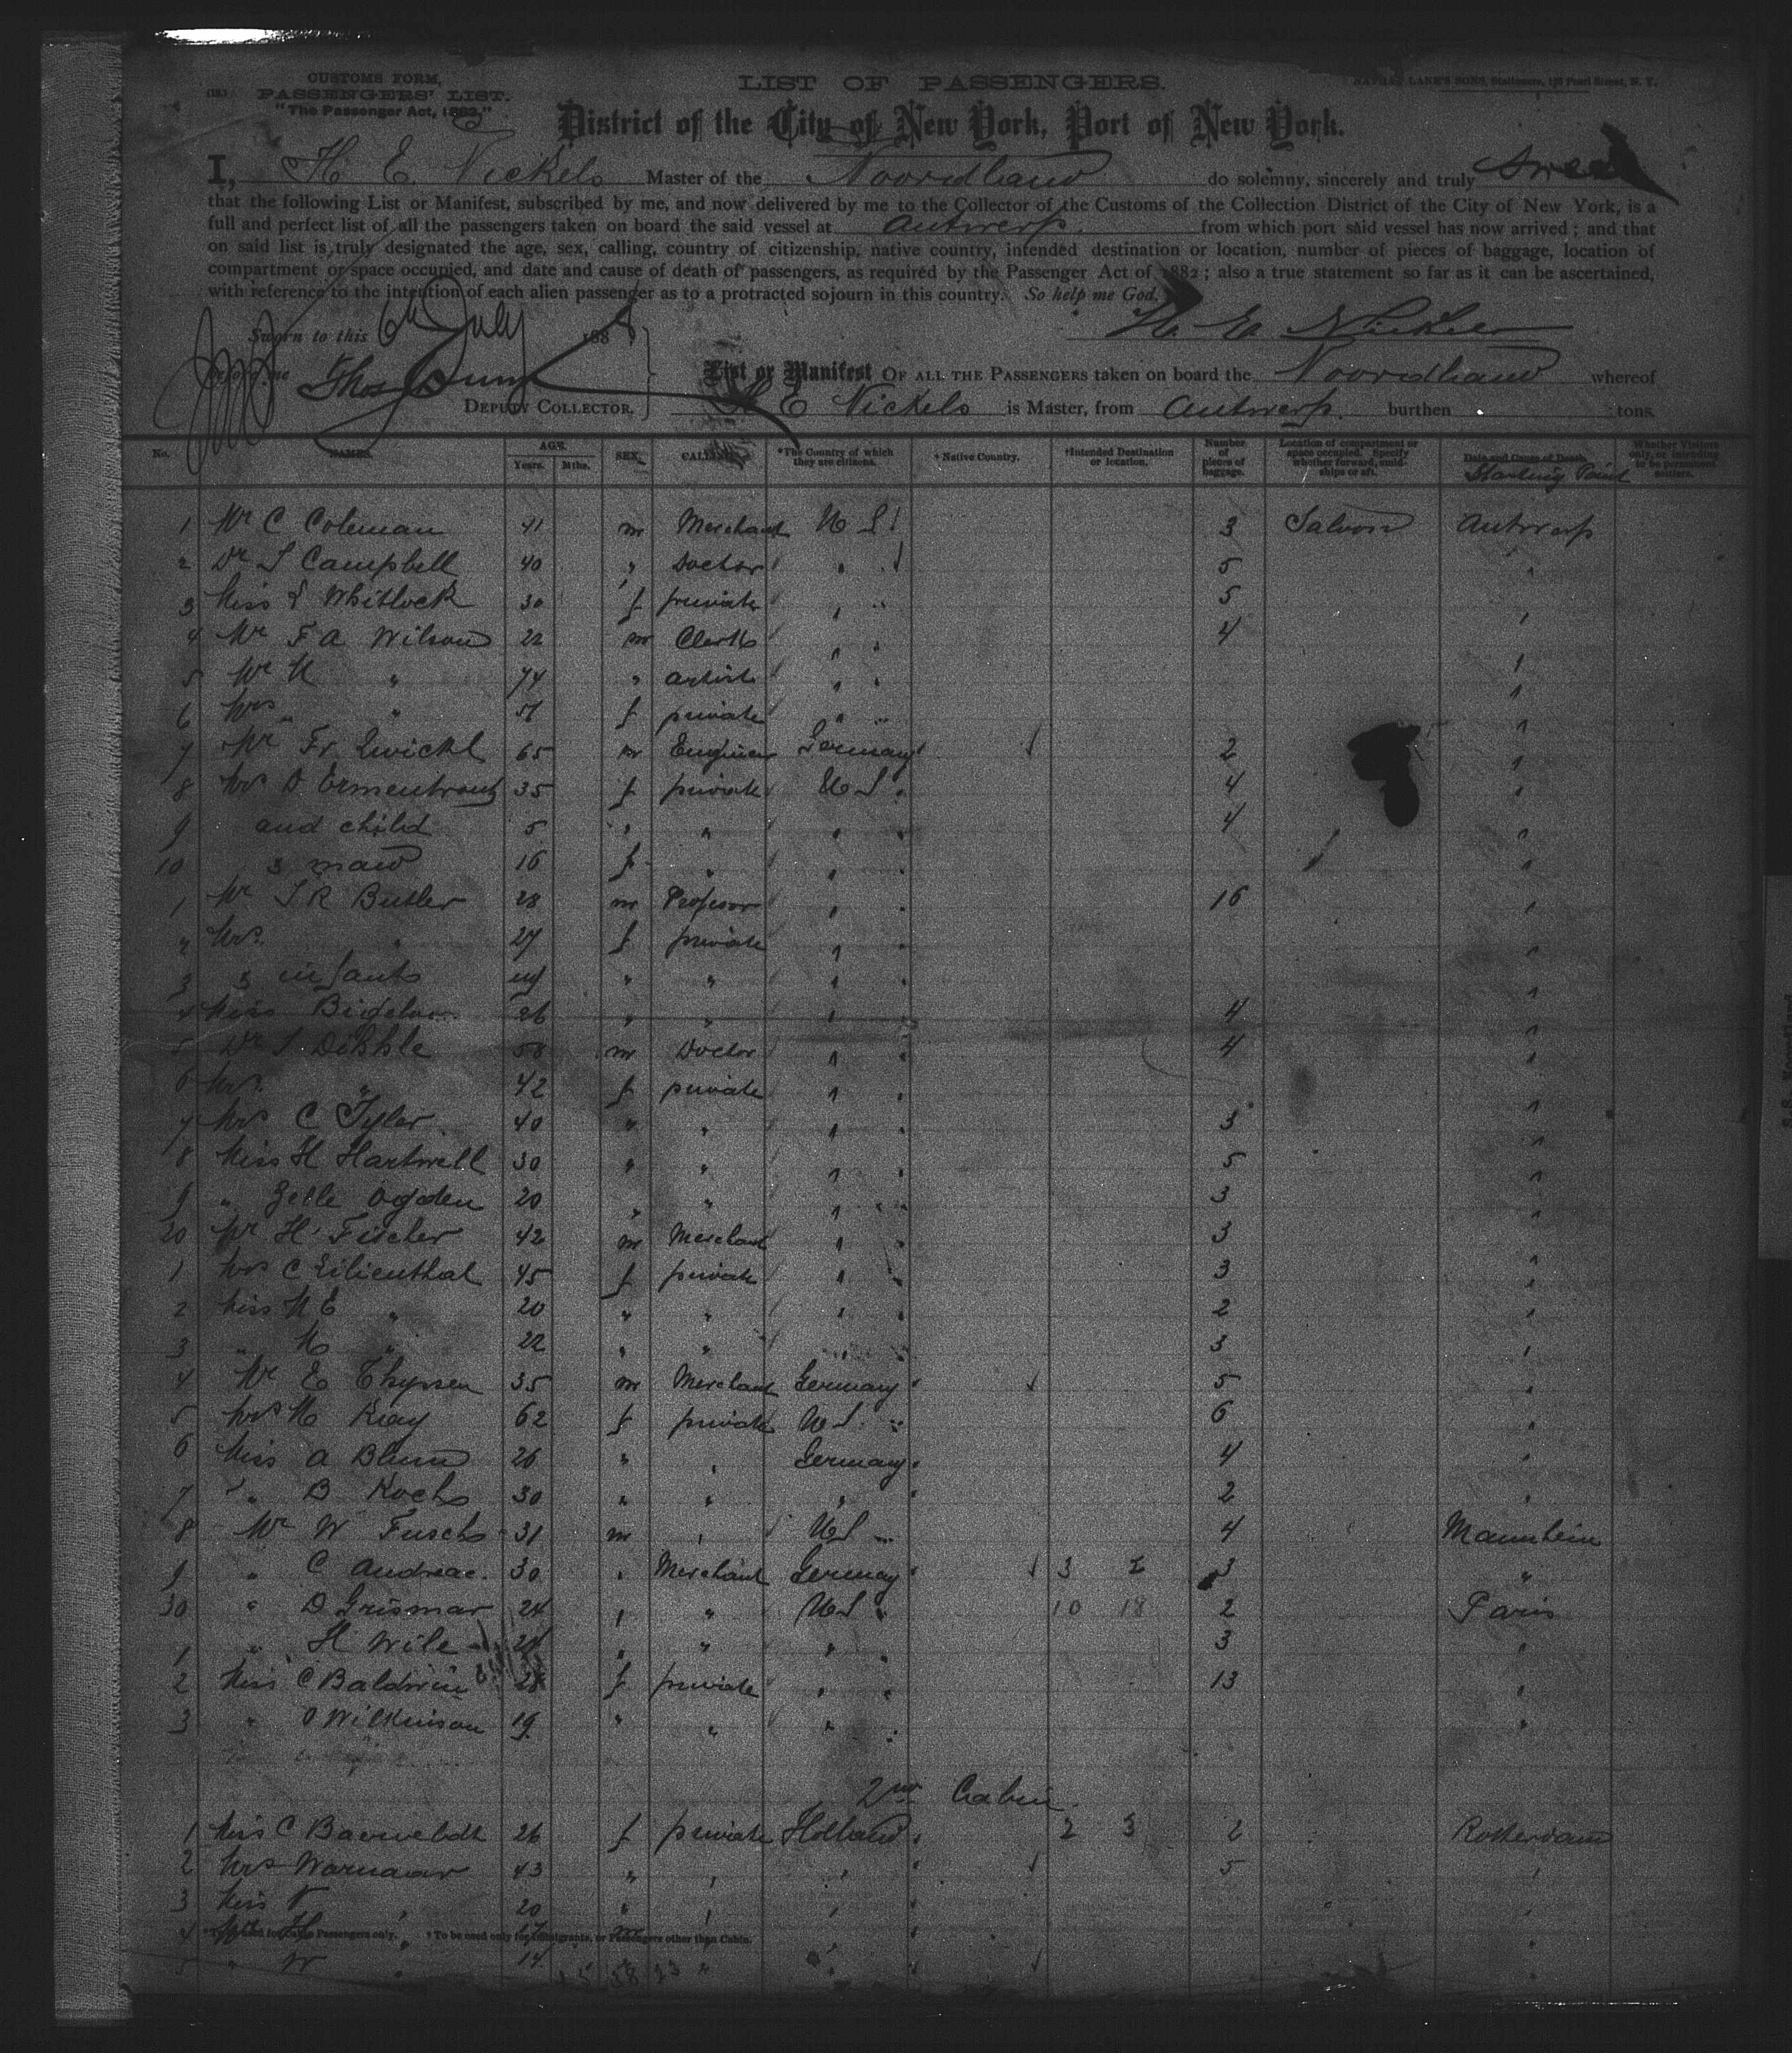 CUSTOMS FORM,
PASSENGERS' LIST.
"The Passenger Act, 1882."
LIST OF PASSENGERS.
LANE'S SONS, Stationers, Pearl Street, N. Y.
District of the City of New York, Port of New York.
I, H E. Nickels Master of the Noordland do solemny, sincerely and truly swear
that the following List or Manifest, subscribed by me, and now delivered by me to the Collector of the Customs of the Collection District of the City of New York, is a
full and perfect list of all the passengers taken on board the said vessel at Antwerp. from which port said vessel has now arrived; and that
on said list is truly designated the age, sex, calling, country of citizenship, native country, intended destination or location, number of pieces of baggage, location of
compartment or space occupied, and date and cause of death of passengers, as required by the Passenger Act of 1882; also a true statement so far as it can be ascertained,
with reference to the intention of each alien passenger as to a protracted sojourn in this country. So help me God.
Sworn to this 6th July 1888 H. E. Nickels
before me Thos Dunn List or Manifest OF ALL THE PASSENGERS taken on board the Noordland whereof
DEPUTY COLLECTOR. H E Nickels is Master, from Antwerp. burthen tons.
No. NAMES. AGE. Years. Mths. SEX. CALLING. *The Country of which they are citizens. *Native Country. †Intended Destination or location. Number of pieces of baggage. Location of compartment or space occupied. Specify whether forward, midships or aft. Date and Cause of Death. Starting Point Whether Visitors only, or intending to be permanent settlers.
1 Mr C Coleman 41 m Merchant U S 3 Saloon Antwerp
2 Dr S Campbell 40 " Doctor " " 5 "
3 Miss L Whitlock 30 f private " " 5 "
4 Mr F A Wilson 22 m Clerk " " 4 "
5 Mr " 74 " artist " " "
6 Mrs " " f private " " "
7 Mr Fr Zwickl 65 m Engineer Germany 2 "
8 Mrs D Ermentrout 35 f private U S 4 "
9 and child 5 " " " " 4 "
10 & maid 16 f " " " "
1 Mr S R Butler 28 m Professor " " 16 "
2 Mrs. " 27 f private " " "
3 & infants inf " " " " "
4 Miss Bigelow 26 " " " " 4 "
5 Dr S Dibble 58 m Doctor " " 4 "
6 Mrs. " 42 f private " " "
7 Mrs C Tyler 40 " " " " 3 "
8 Miss H Hartwell 30 " " " " 5 "
9 " Zelle Ogden 20 " " " " 3 "
20 Mr H Fischer 42 m Merchant " " 3 "
1 Mrs C Lilienthal 45 f private " " 3 "
2 Miss M E " 20 " " " " 2 "
3 " " 22 " " " " 3 "
4 Mr E Thyssen 35 m Merchant Germany 5 "
5 Mrs M Kay 62 f private U S. 6 "
6 Miss A Blum 26 " " Germany 4 "
7 " B Koch 30 " " " 2 "
8 Mr W Fusch 31 m " U S 4 Mannheim
9 " C Andreae. 30 " Merchant Germany 3 2 3 "
30 " D Grismar 24 " " U S 10 18 2 Paris
1 " H Wile " " " " 3 "
2 Miss C Baldwin 28 f private " " 13 "
3 " O Wilkinson 19 " " " " "
2nd Cabin.
1 Miss C Barneveldt 26 f private Holland 2 3 2 Rotterdam
2 Mrs Warnaar 43 " " " 5 "
3 Miss " 20 " " " "
4 Mr H " 17 m " " "
* To be used for Cabin Passengers only. † To be used only for Immigrants, or Passengers other than Cabin.
5 " W " 14 " " "